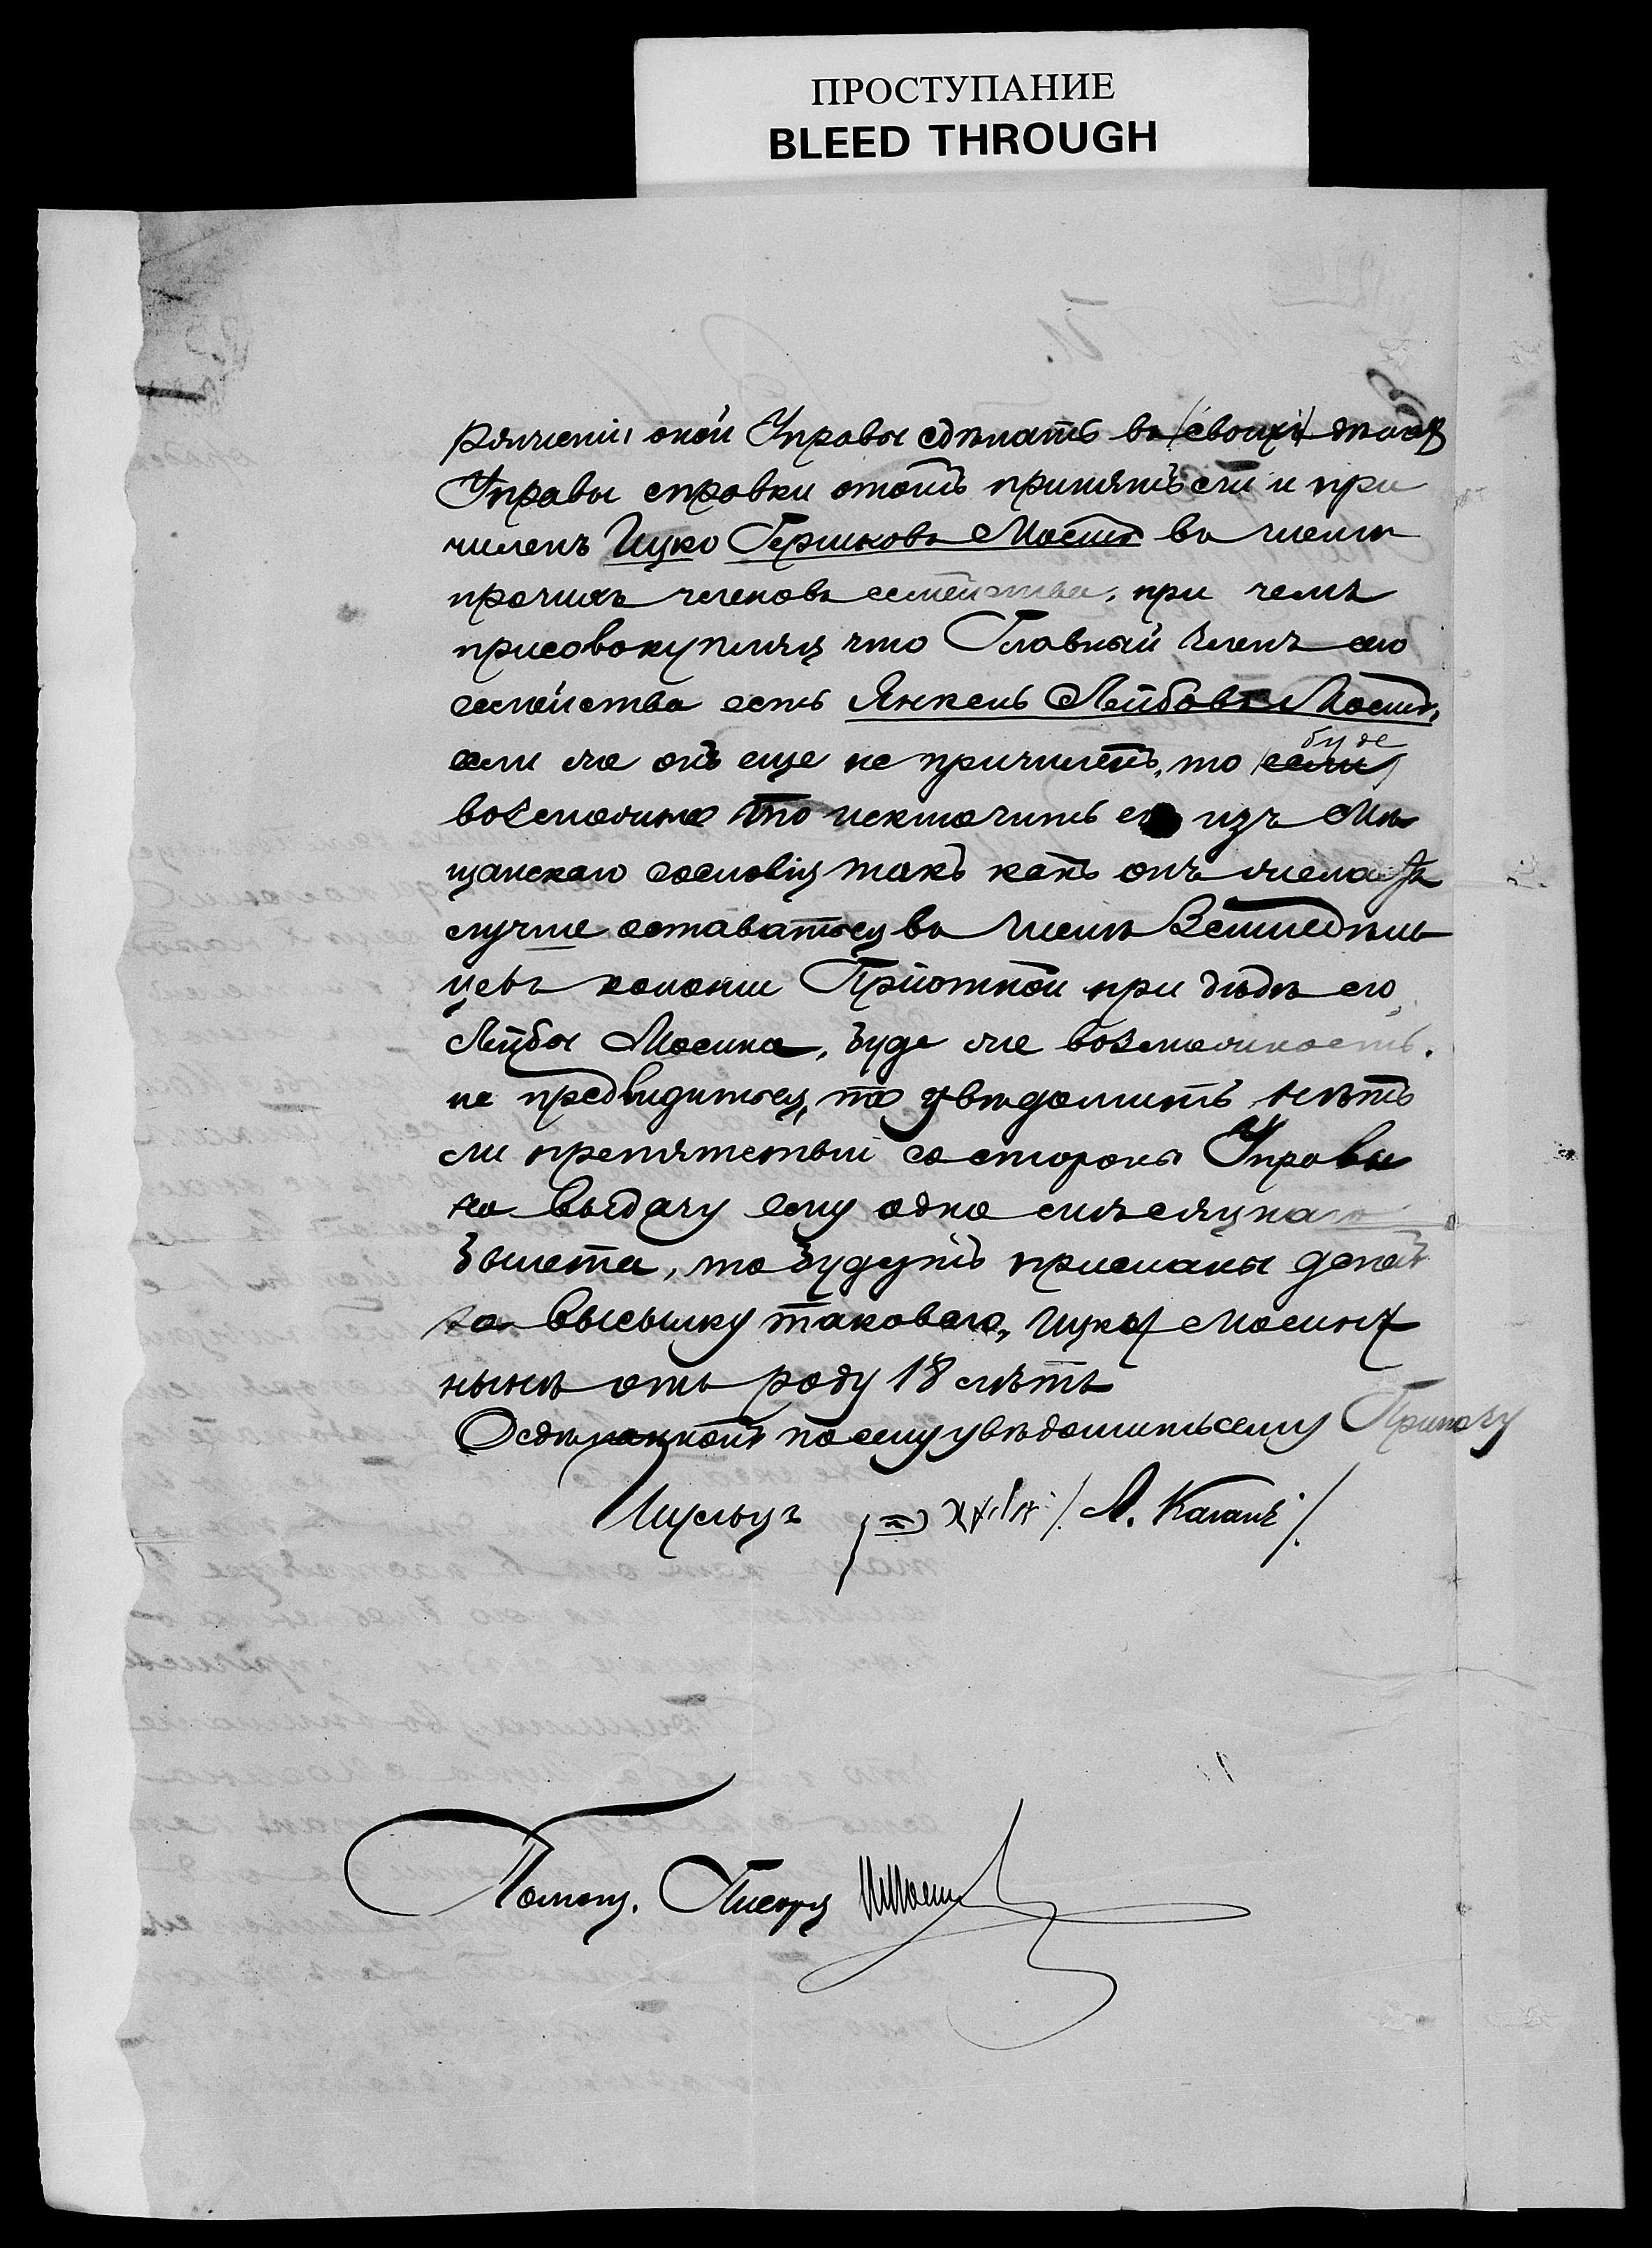 ПРОСТУПАНИЕ
BLEED THROUGH
оной Управы сдѣлать въ (своихъ) дѣлахъ
Управы справки отомъ принятъ ли и при
численъ Ицко Гершковъ Мосинъ въ числѣ
прочихъ членовъ семейства, при чемъ
присовокупляя что Главный членъ его
семейства есть Янкель Лейбовъ Мосинъ,
если же онъ еще не причисленъ, то (если) буде
возможно то исключить его изъ Мѣ
щанскаго сословія такъ какъ онъ желаетъ
лучше оставаться въ числѣ Земледѣль
цевъ колоніи Пріютной при дѣдѣ его,
Лейбы Мосина, буде же возможность
не предвидиться, то увѣдомить нѣтъ
ли препятствій со стороны Управы
на выдачу ему одно мѣсячнаго
билета, то будутъ присланы деньги
за высылку таковаго, Ицко Мосинъ
нынѣ отъ роду 18 лѣтъ
О сдѣланномъ по сему увѣдомить сему Приказу
Шульцъ /Л. Каганъ/.
Помощ. Писаря